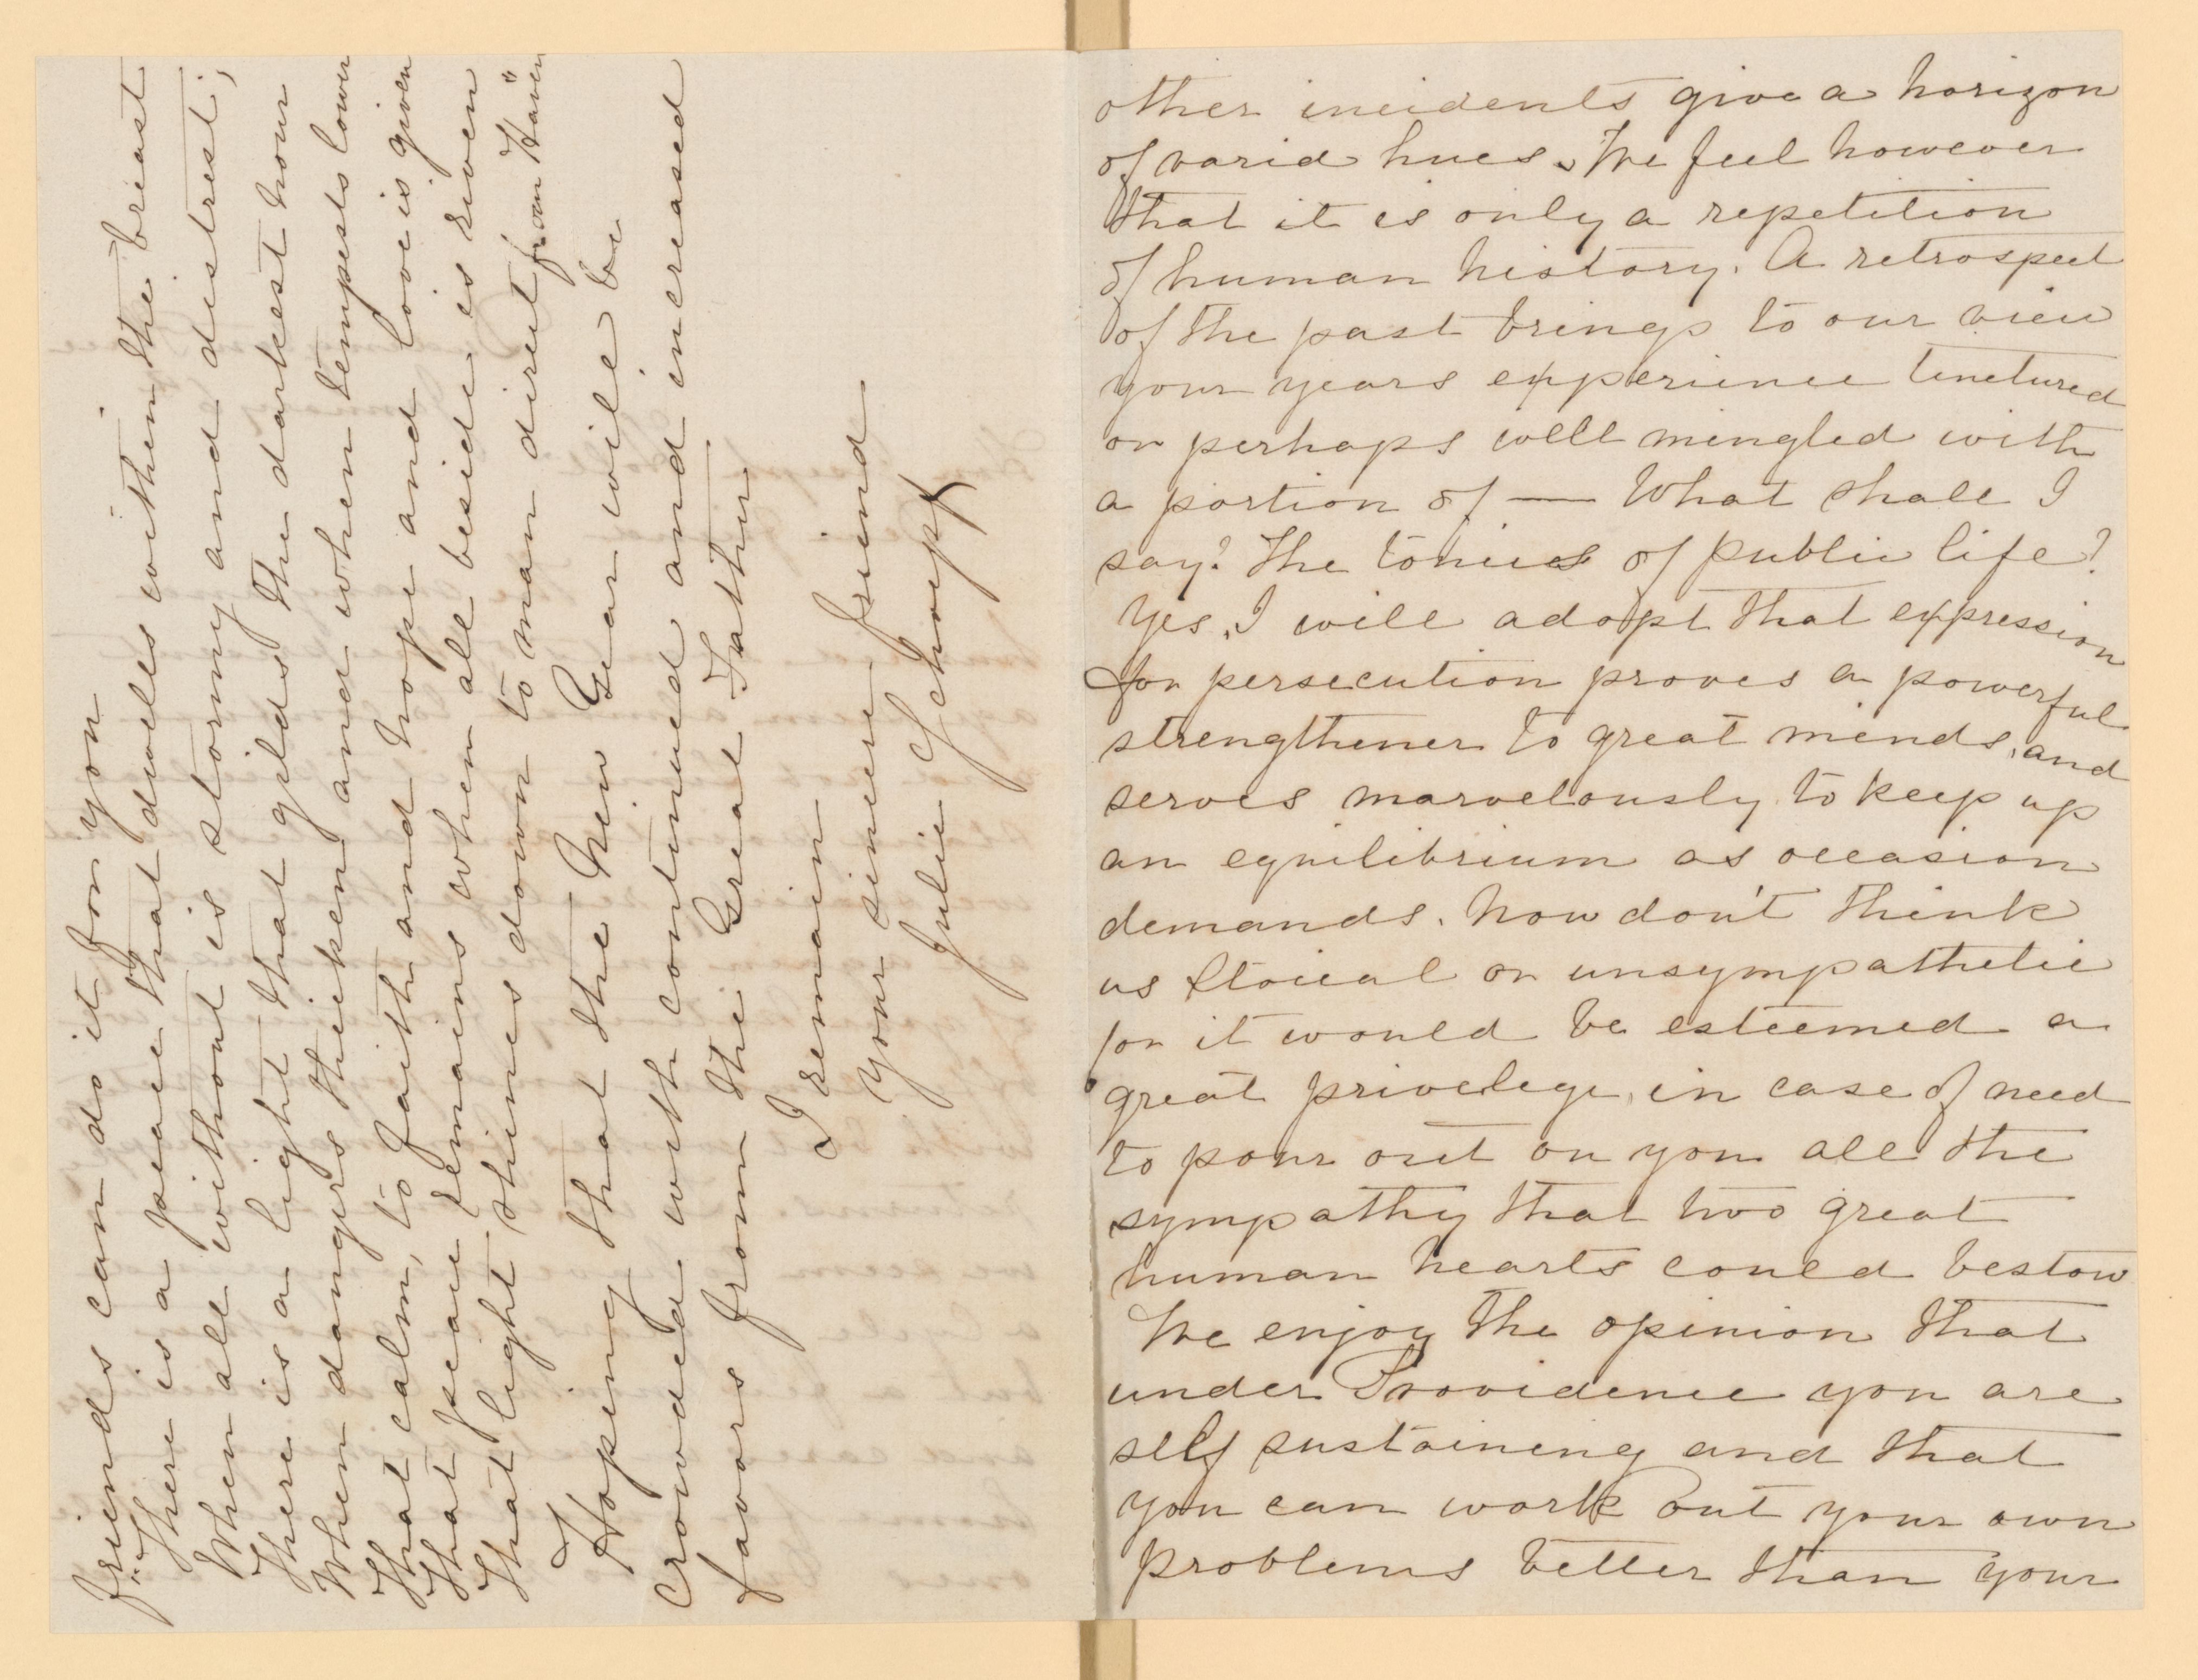 other incidents give a horizon
of varid hues. We feel however
that it is only a repetition
of human history. A retrospect
of the past brings to our view
your years experience tinctured
or perhaps well mingled with
a portion of — What shall I
say? The tonics of public life?
Yes, I will adopt that expression
for persecution proves a powerful
strengthener to great minds, and
serves marvelously to keep up
an equilibrium as occasion
demands. Now don't think
us Stoical or unsympathetic
for it would be esteemed a
great privelege, in case of need
to pour out on you all the
sympathy that two great
human hearts could bestow
We enjoy the opinion that
under Providence you are
self sustaining and that
you can work out your own
problems better than your
friends can do it for you
"There is a peace that dwells within the breast
When all without is stormy and distrest;
There is a light that gilds the darkest hour
When dangers thicken and when tempests lower
That calm, to faith and hope and love is given
That peace remains when all beside is riven
That light shines down to man direct from Haven"
Hoping that the New Year will be
crowded with continued and increased
favors from the Great Father
I remain
your sincere friend
Julie Schoepf